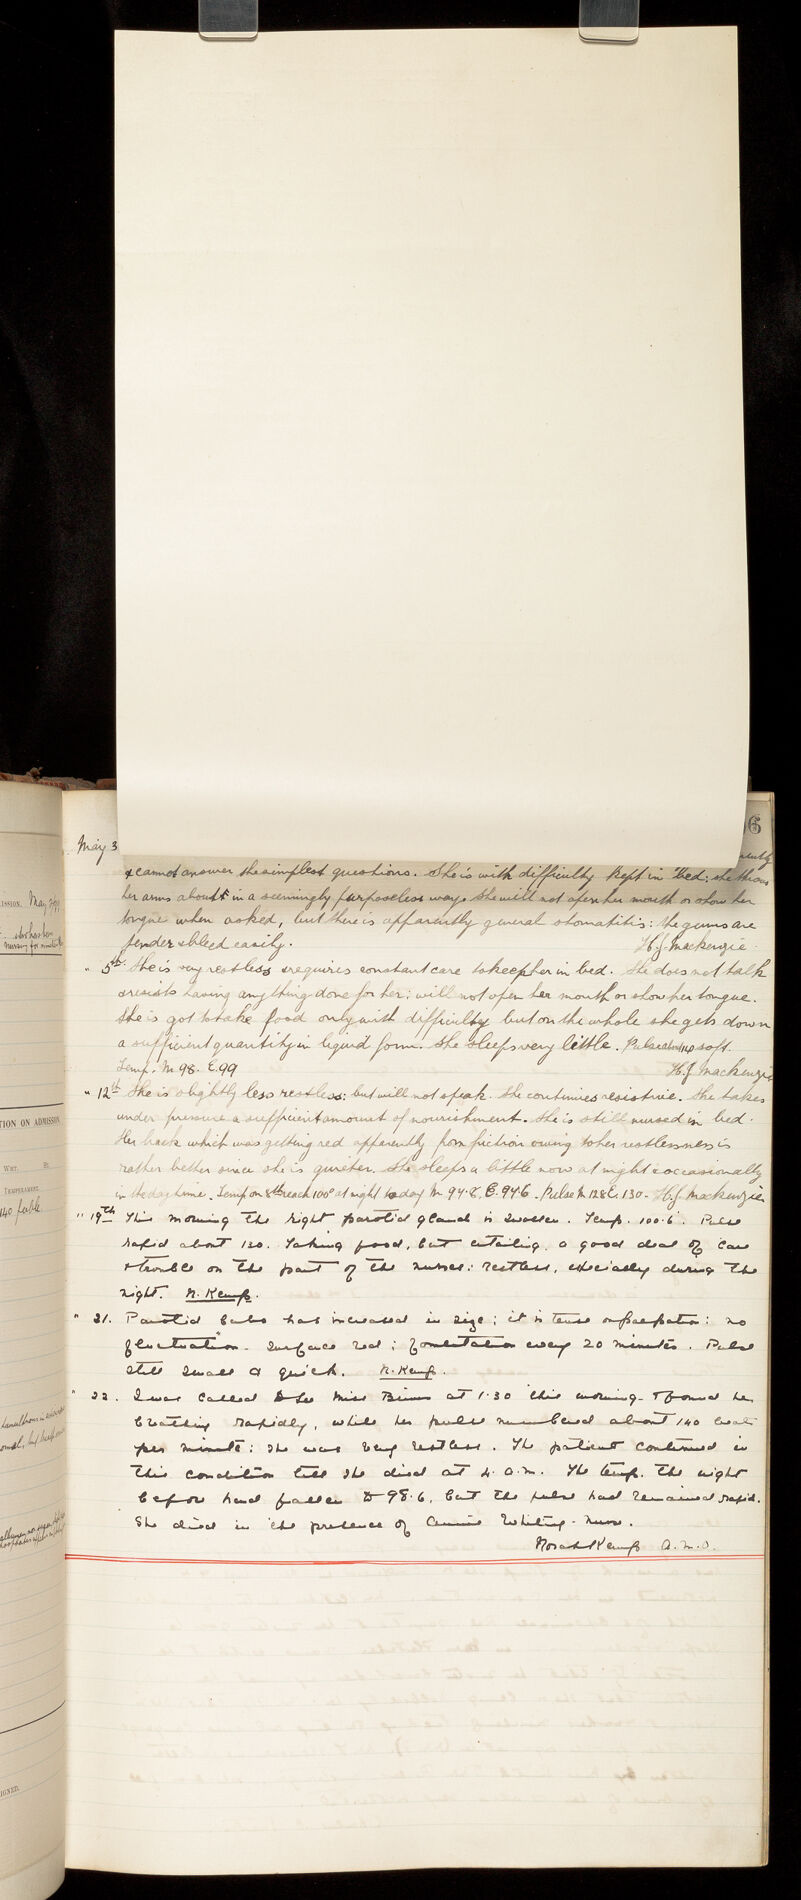 May 3
& cannot answer the simplest questions. She is with difficulty kept in bed: she throws
her arms about in a seemingly purposeless way. She will not open her mouth or show her
tongue when asked, but there is apparently general stomatitis: the gums are
tender & bleed easily. H.J. Mackenzie.
" 5th. She is very restless & requires constant care to keep her in bed. She does not talk
& resists having anything done for her: will not open her mouth or show her tongue.
She is got to take food only with difficulty but on the whole she gets down
a sufficient quantity in liquid form. She sleeps very little. Pulse about 114 soft.
Temp. M 98. E. 99 H.J. Mackenzie
" 12th She is slightly less restless: but will not speak. She continues resistive. She takes
under pressure a sufficient amount of nourishment. She is still nursed in bed.
Her back which was getting red apparently from friction owing to her restlessness is
rather better since she is quieter. She sleeps a little now at night & occasionally
in the daytime. Temp on 8th reach 100° at night today M. 97.8, E. 97.6. Pulse M 128 E. 130. H.J. Mackenzie
" 19th This morning the right parotid gland is swollen. Temp. 100.6. Pulse
rapid about 130. Taking food, but entailing a good deal of care
& trouble on the part of the nurses: restless, especially during the
night. N. Kemp.
" 21. Parotid bubo has increased in size; it is tense on palpation: no
fluctuation. Surface red; fomentation every 20 minutes. Pulse
still small & quick. N. Kemp.
" 22. I was called to see Miss at 1.30 this morning & found her
breathing rapidly, while her pulse numbered about 140 beats
per minute: she was very restless. The patient continued in
this condition till she died at 4. a.m. The temp. the night
before had fallen to 98.6, but the pulse had remained rapid.
She died in the presence of Annie Whiting - nurse.
Norah Kemp A.M.O.
ISSION. May
TION ON ADMISSION
WHT.
TEMPERAMENT.
140 feeble
IGNED.